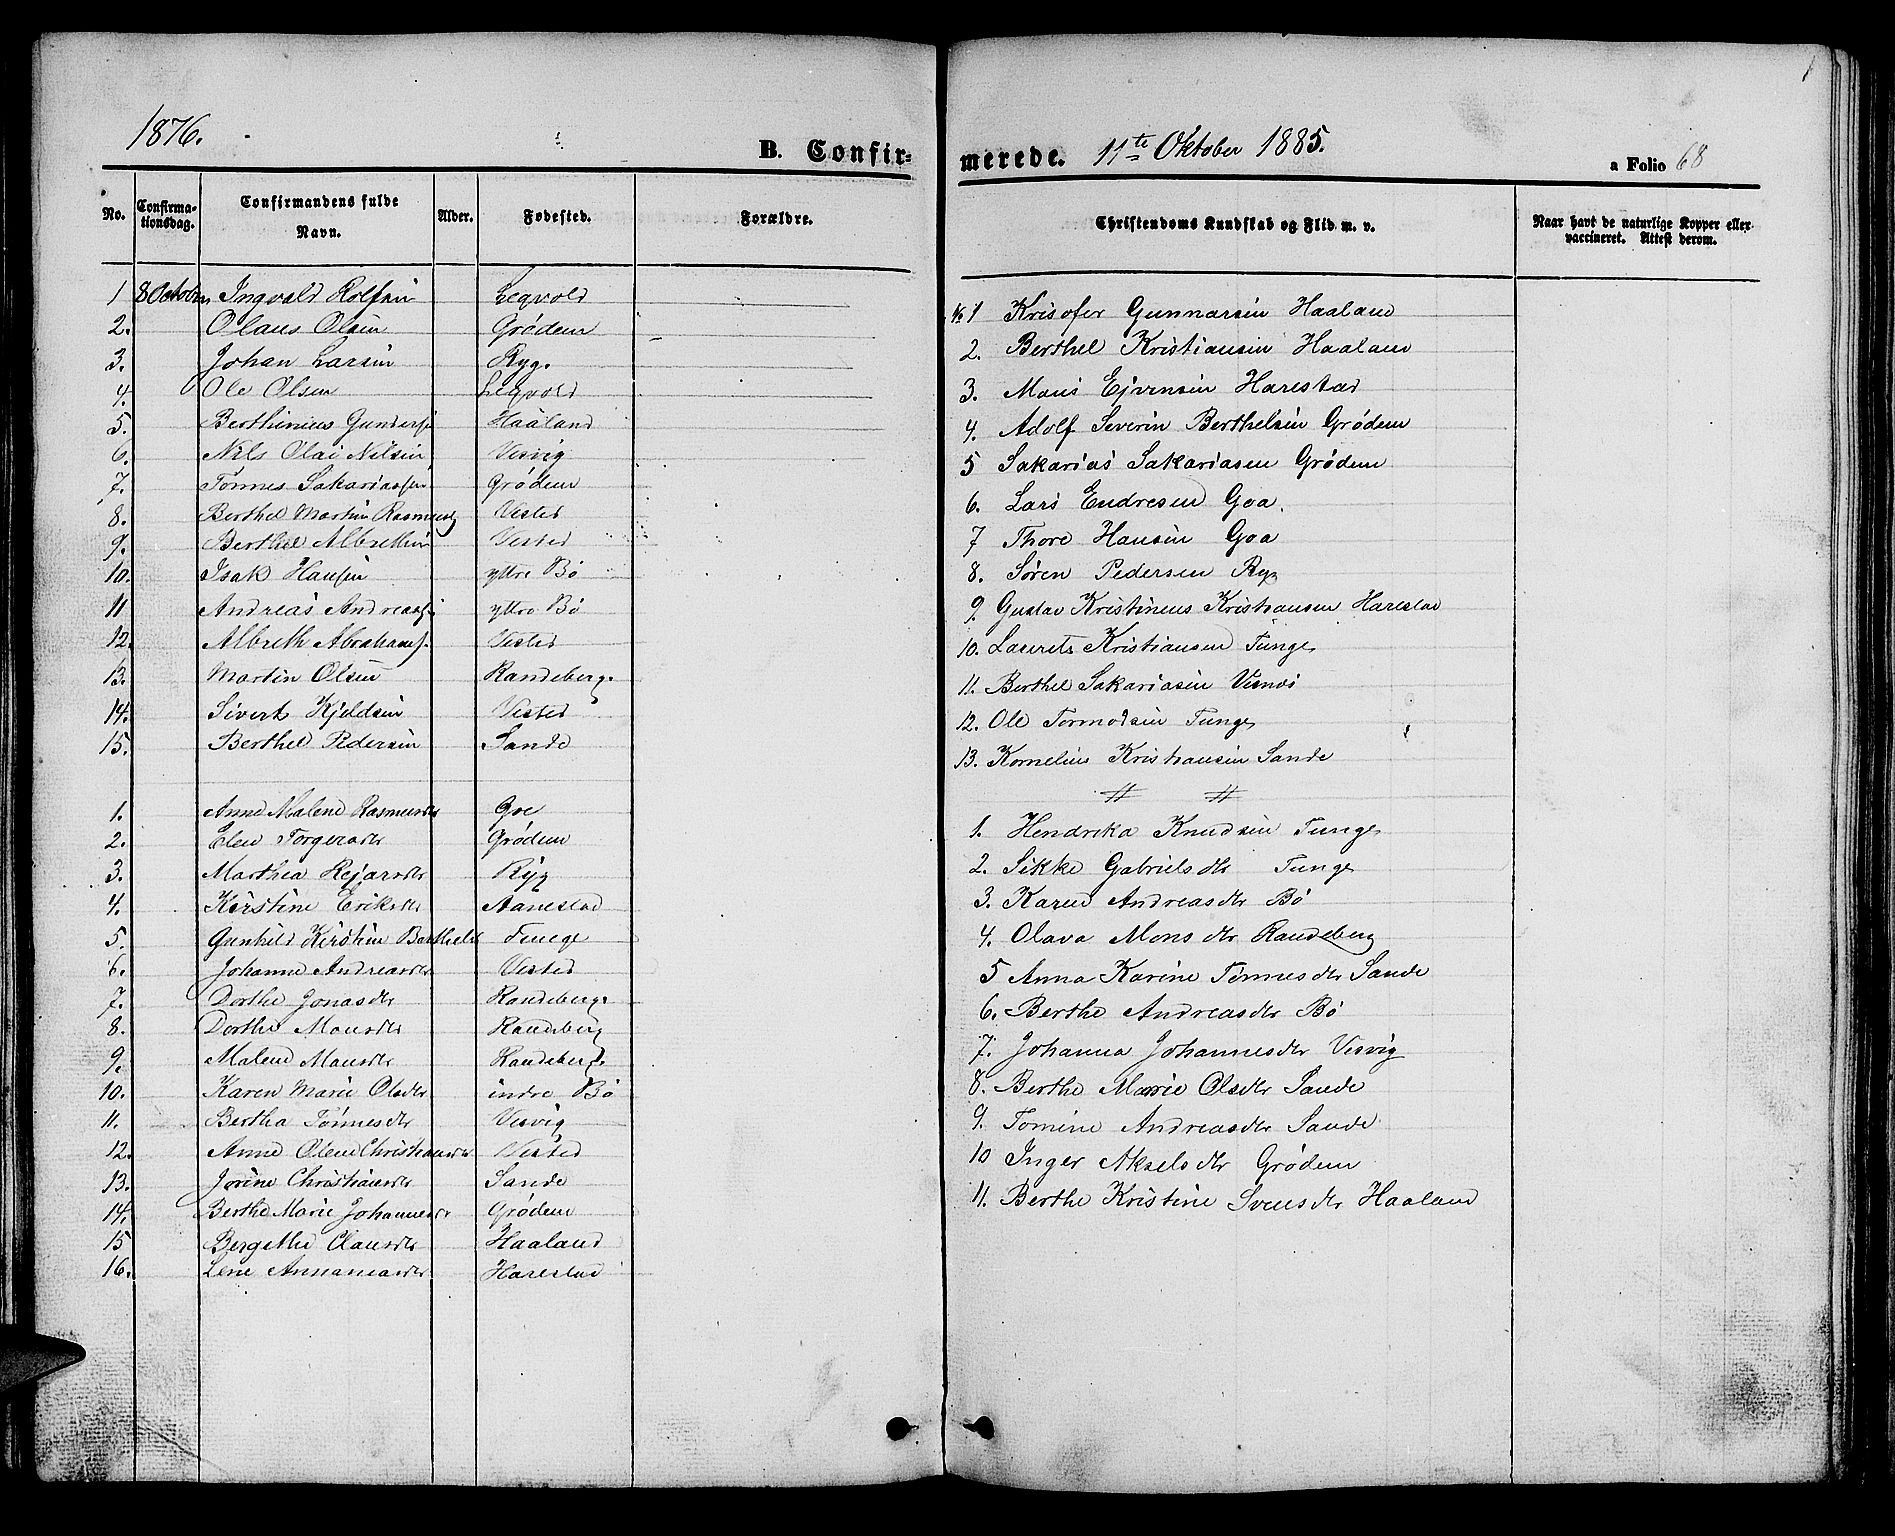 1876.
B. Confir-
No. Confirma-tionsdag. Confirmandens fulde Navn. Alder. Fødested. Forældre.
1 8 October Ingvald Rolfsin Leqvold
2. Olaus Olsin Grødem
3. Johan Larsin Ryg.
4. Ole Olsen Leqvold
5. Berthinius Gunders Haaland
6. Nils Olai Nilsin Visvig
7. Tønnes Sakariassen Grødem
8. Berthel Martin Rasmuss Visted
9. Berthel Albrethsin Visted
10. Isak Hansin yttre Bø
11 Andreas Andreass yttre Bø
12. Albreth Abrahams. Visted
13. Martin Olsin Randeberg.
14. Sivert Kjeldsin Visted
15. Berthel Pedersin Sande
1. Anne Malene Rasmusdtr Goe
2. Elen Torgersdtr Grødem
3. Marthea Rejarsdtr Ryg
4. Kirstine Eriksdtr Aanestad
5. Gunhild Kirstine Berthelsd Tunge
6. Johanne Andreasdtr Visted
7. Dorthe Jonasdtr Randeberg.
8. Dorthe Monsdtr Randeberg
9. Malene Monsdtr Randeberg.
10. Karen Marie Olsdtr indre Bø
11. Bertha Tönnesdtr Visvig
12. Anne Olene Christiansdtr Visted
13. Jorine Christiansdtr Sande
14. Berthe Marie Johannesdtr Grødem
15 Bergithe Olausdtr Haaland
16. Lene Annaniasdtr Harestad
merede. 11te Oktober 1885.
a Folio 68
Christendoms Kundskab og Flid m. v. Naar havt de naturlige Kopper eller vaccineret. Attest derom.
№ 1 Krisofer Gunnarsin Haaland
2. Berthel Kristiansin Haaland
3. Mons Ejvensin Harestad
4. Adolf Severin Berthelsin Grødem
5 Sakarias Sakariasen Grødem
6. Lars Endresen Goa.
7 Thore Hansin Goa
8. Søren Pedersen Ryg
9. Gustav Kristinius Kristiansen Harestad
10. Laurits Kristiansen Tunge
11. Berthel Sakariasin Visnæs
12. Ole Tormodsin Tunge
13. Kornelius Kristiansin Sande
1. Hendrika Knudsin Tunge
2. Sikke Gabrielsdtr Tunge
3. Karen Andreasdtr Bø
4. Olava Monsdtr Randeberg
5 Anna Karine Tönnesdtr Sande
6. Berthe Andreasdtr Bø
7. Johanna Johannesdtr Visvig
8. Berthe Marie Olsdtr Sande
9. Tomine Andreasdtr Sande
10 Inger Akselsdtr Grødem
11. Berthe Kristine Svensdtr Haaland